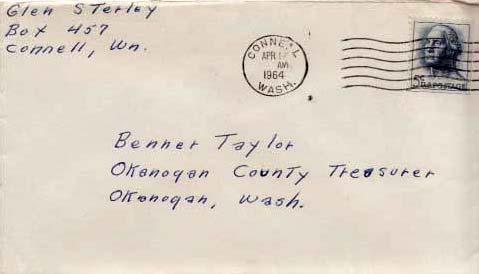 Glen Sterley
Box 457
Connell, Wn.
CONNELL
APR
AM
1964
WASH.
5¢ U.S. POSTAGE
Benner Taylor
Okanogan County Treasurer
Okanogan, Wash.